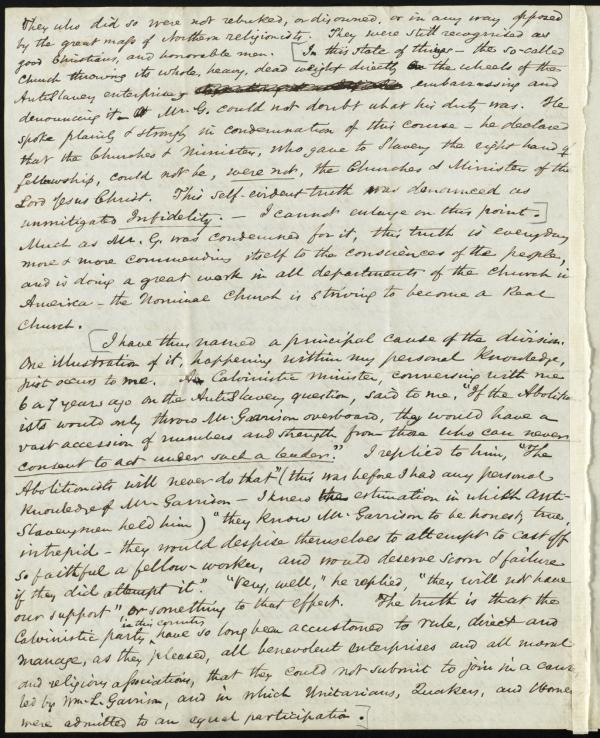 They who did so were not rebuked, or disowned, or in any way opposed
by the great mass of Northern religionists. They were still recognised as
good Christians, and honorable men. [In this state of things – the so-called
Church throwing its whole, heavy, dead weight directly on the wheels of the
Antislavery enterprise, embarrassing and
denouncing it – Mr. G. could not doubt what his duty was. He
spoke plainly & strongly in condemnation of this course – he declared
that the Churches & Ministers, who gave to Slavery the right hand of
fellowship, could not be, were not, the Churches & Ministers of the
Lord Jesus Christ. This self-evident truth was denounced as
unmitigated Infidelity. – I cannot enlarge on this point.]
Much as Mr. G. was condemned for it, this truth is everyday
more & more commending itself to the consciences of the people,
and is doing a great work in all departments of the Church in
America – the Nominal Church is striving to become a Real
Church.
[I have thus named a principal cause of the division.
One illustration of it, happening within my personal knowledge,
just occurs to me. A Calvinistic minister, conversing with me
6 or 7 years ago on the Antislavery question, said to me, "If the Abolition
ists would only throw Mr. Garrison overboard, they would have a
vast accession of numbers and strength from those who can never
consent to act under such a leader." I replied to him, "The
Abolitionists will never do that" (this was before I had any personal
knowledge of Mr. Garrison – I knew the estimation in which Anti-
Slavery men held him) "they know Mr. Garrison to be honest, true,
intrepid – they would despise themselves to attempt to cast off
so faithful a fellow-worker, and would deserve scorn & failure
if they did attempt it." "Very well," he replied, "they will not have
our support" or something to that effect. The truth is that the
in this country
Calvinistic party have so long been accustomed to rule, direct and
manage, as they pleased, all benevolent enterprises and all moral
and religious associations, that they could not submit to join in a cause
led by Wm. L. Garrison, and in which Unitarians, Quakers, and Women
were admitted to an equal participation.]